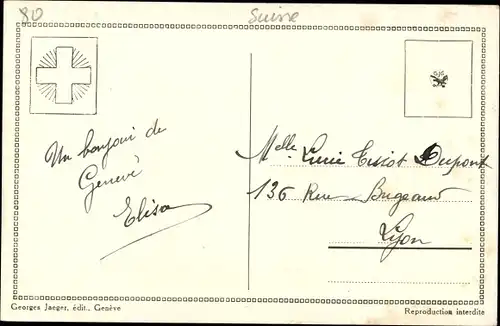 80
Suisse
Un bonjour de
Genève
Elisa
Melle Lucie Tissot Dupont
136 Rue Bugeaud
Lyon
Georges Jaeger, édit., Genève
Reproduction interdite